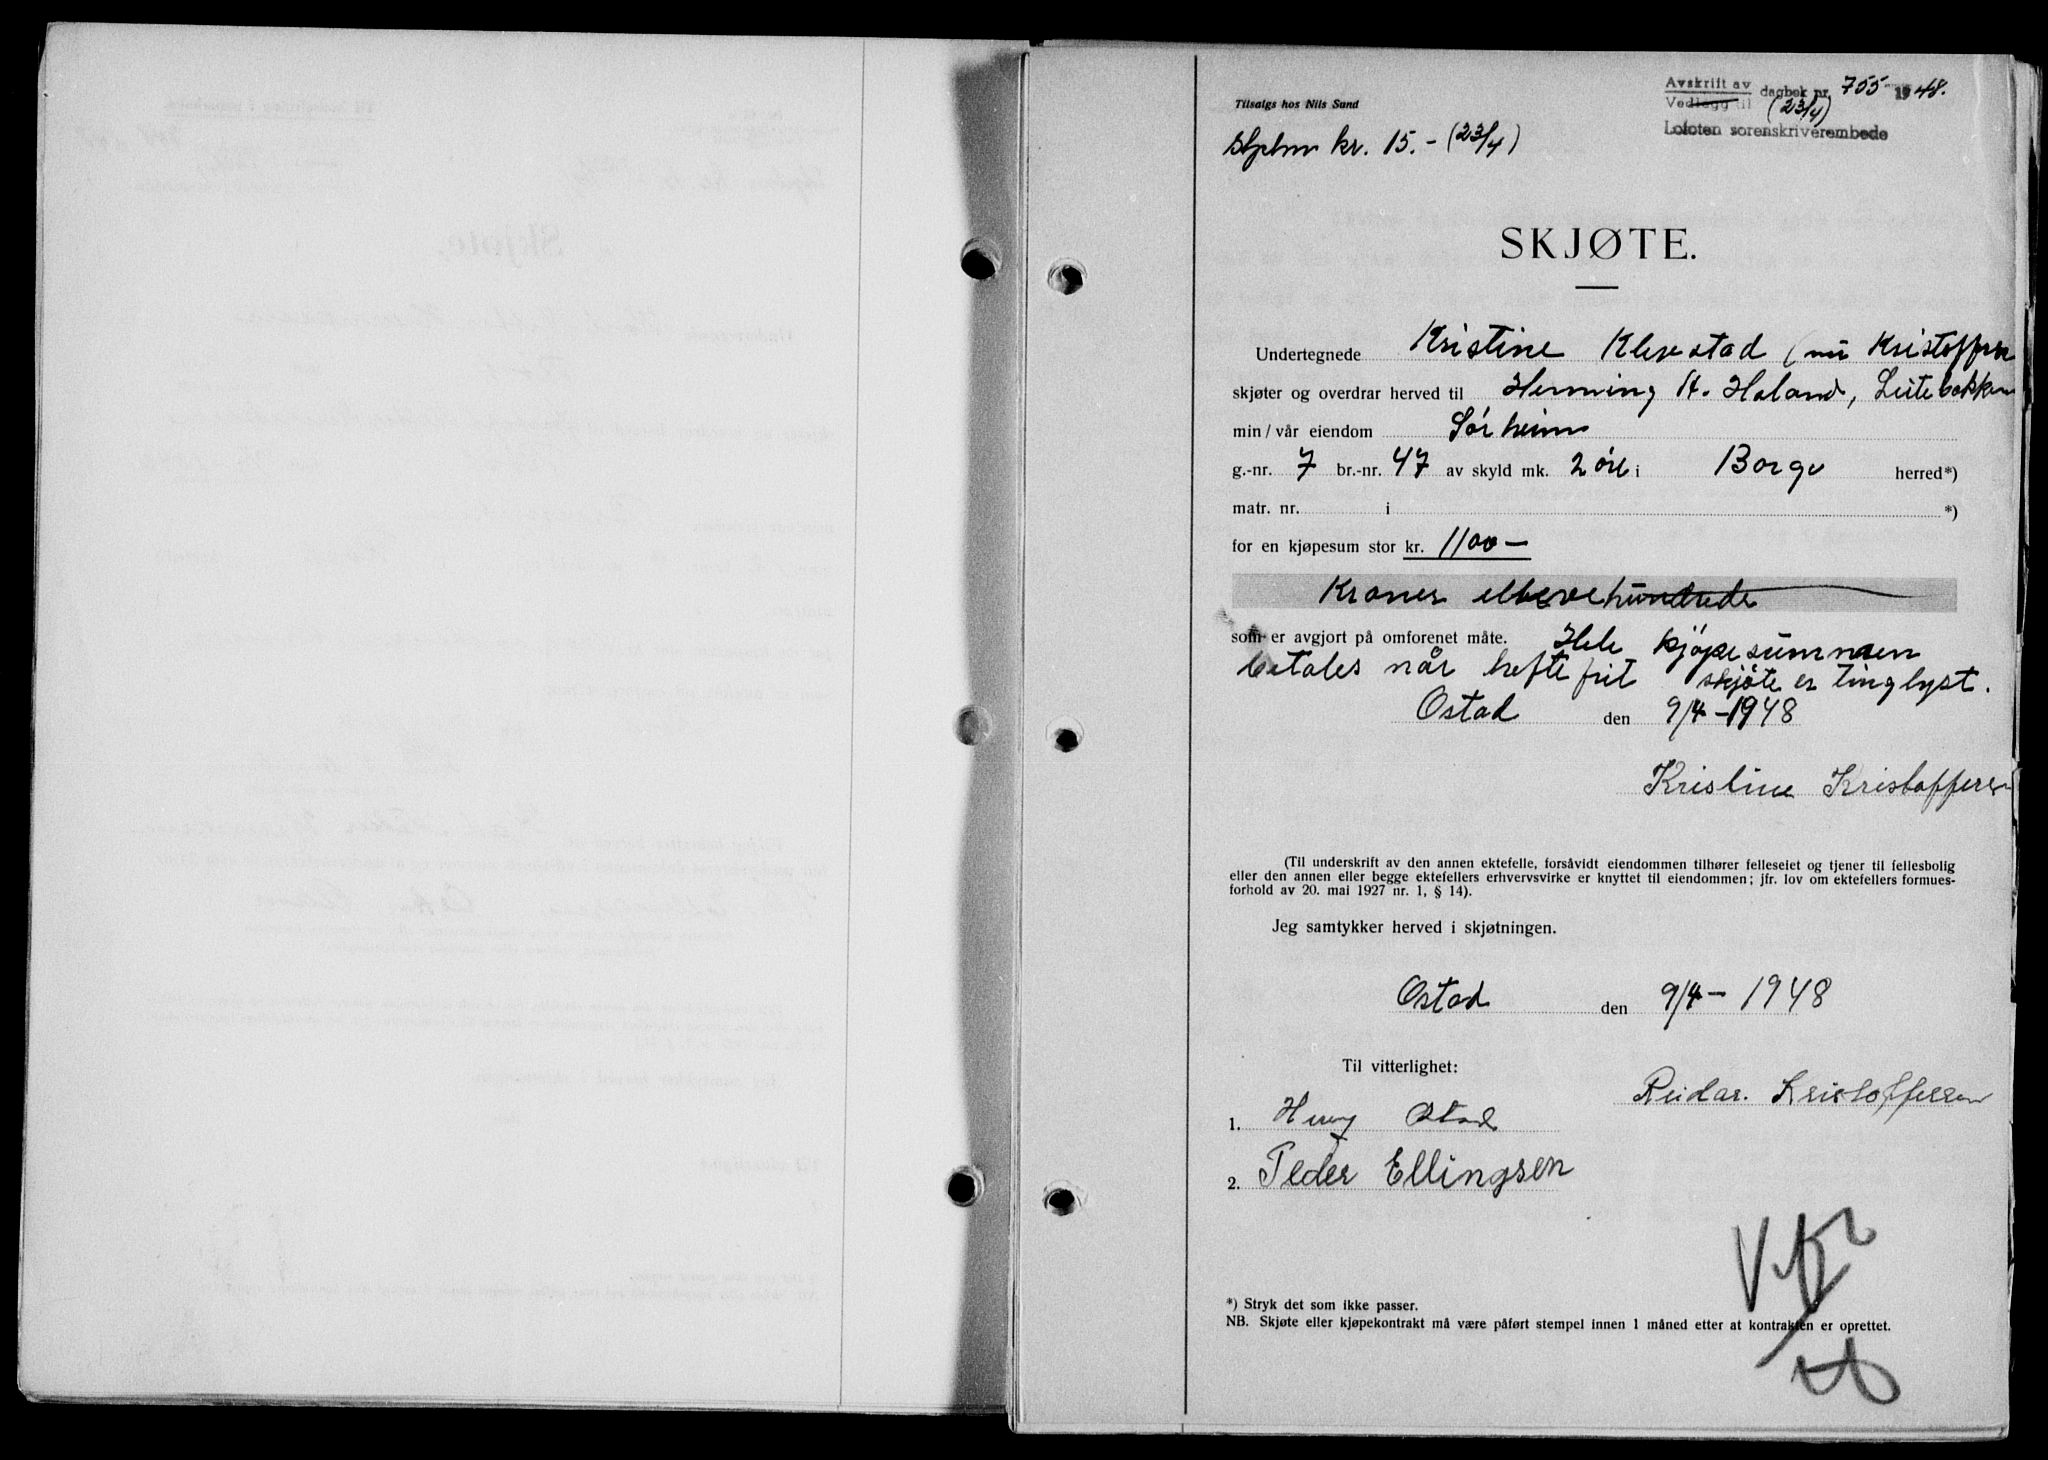 Tilsalgs hos Nils Sund
Avskrift av
Vedlegg til dagbok nr. 755 1948.
(23/4)
Lofoten sorenskriverembede
kr. 15.- (23/4)
SKJØTE.
Undertegnede Kristine Klevstad (nu Kristoffersen
skjøter og overdrar herved til Henning H. Haland, Leitebakken
min/vår eiendom Sørheim
g.-nr. 7 br.-nr. 47 av skyld mk. 2 øre i Borge herred*)
matr. nr. i *)
for en kjøpesum stor kr. 1100 —
Kroner ellevehundrede
som er avgjort på omforenet måte. Hele kjøpesummen
betales når heftefrit skjøte er tinglyst.
Ostad den 9/4-1948
Kristine Kristoffersen
(Til underskrift av den annen ektefelle, forsåvidt eiendommen tilhører felleseiet og tjener til fellesbolig
eller den annen eller begge ektefellers erhvervsvirke er knyttet til eiendommen; jfr. lov om ektefellers formues-
forhold av 20. mai 1927 nr. 1, § 14).
Jeg samtykker herved i skjøtningen.
Ostad den 9/4 - 1948
Til vitterlighet:
Reidar Kristoffersen
1. Henry Ostad
2. Peder Ellingsen
*) Stryk det som ikke passer.
NB. Skjøte eller kjøpekontrakt må være påført stempel innen 1 måned etter at kontrakten er oprettet.